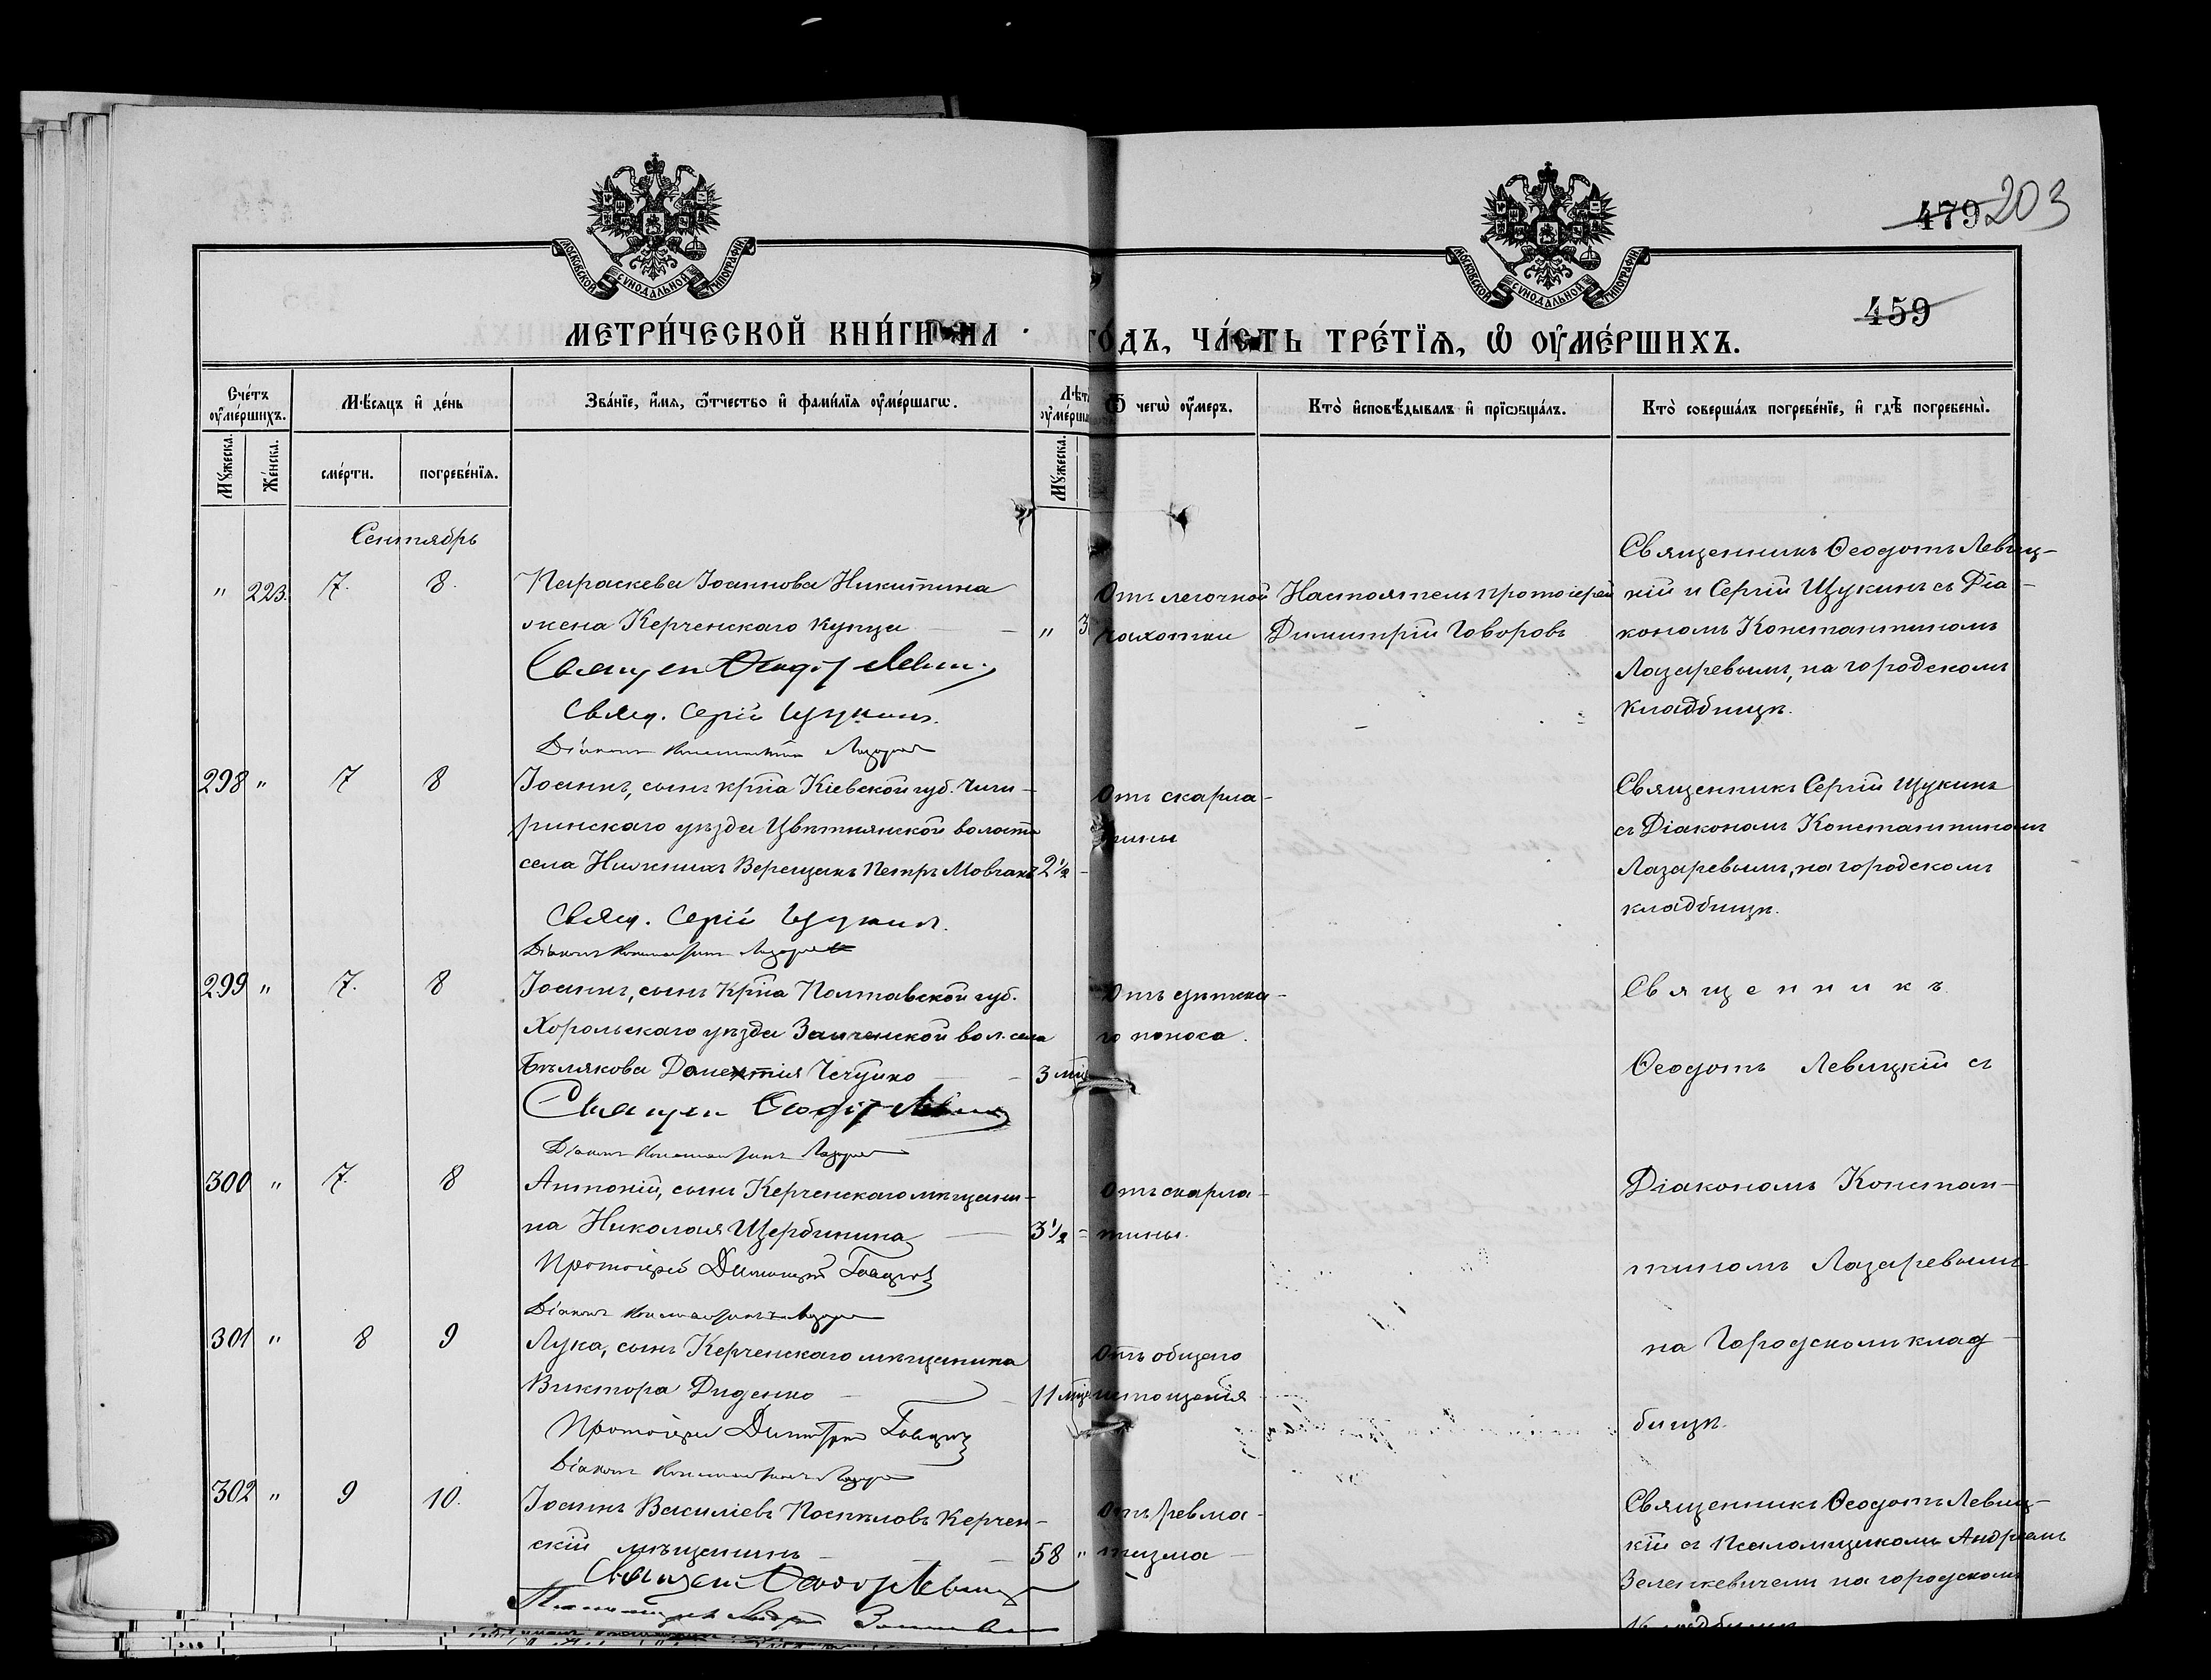 479 203
459
МОСКОВСКОЙ СѴНОДАЛЬНОЙ ТИПОГРАФІИ
МОСКОВСКОЙ СѴНОДАЛЬНОЙ ТИПОГРАФІИ
МЕТРИ́ЧЕСКОЙ КНИ́ГИ НА ГО́ДЪ, ЧА́СТЬ ТРЕ́ТЇѦ, Ѡ҆ ОУ҆МЕ́РШИХЪ.
Сче́тъ оу҆ме́ршихъ.
Мꙋ́жеска.
Же́нска.
Мѣ́сяцъ и҆ де́нь
сме́рти.
погребе́нїѧ.
Зва́нїе, и҆́мѧ, ѻ҆́тчество и҆ фами́лїѧ оу҆ме́ршагѡ.
Лѣ́та оу҆ме́рша
Мꙋ́жеска.
Ѿ чегѡ̀ оу҆́меръ.
Кто̀ и҆сповѣ́дывалъ и҆ прїѡбща́лъ.
Кто̀ соверша́лъ погребе́нїе, и҆ гдѣ̀ погребены̀.
Сентябрь
" 223. 7. 8.
Параскева Іоаннова Никитина
жена Керченскаго Купца — " 3
Священ Ѳеодот Левиц
Свящ. Сергій Щукинъ.
Діаконъ Константинъ Лазарев
Отъ легочной
чахотки
Настоятель протоіерей
Димитрій Говоровъ
Священникъ Ѳеодотъ Левиц-
кій и Сергій Щукинъ съ Діа-
кономъ Константиномъ
Лазаревымъ, на городскомъ
кладбищѣ.
298 " 7 8
Іоаннъ, сынъ крна Кіевской губ. Чиги-
ринскаго уѣзда Цвѣтнянской волости
села Нижнихъ Верещакъ Петръ Мовчанъ 2½ -
Свящ. Сергій Щукин.
Діаконъ Константинъ Лазарев
Отъ скарла-
тины
Священникъ Сергій Щукинъ
съ Діакономъ Константиномъ
Лазаревымъ, на городскомъ
кладбищѣ.
299 " 7. 8
Іоаннъ, сынъ крна Полтавской губ.
Хорольскаго уѣзда вол. села
Бѣлякова 3 мѣс
Священ Ѳеодот Левиц
Діаконъ Константинъ Лазарев
Отъ дѣтска-
го поноса.
Священникъ
Ѳеодотъ Левицкій съ
300 " 7. 8
Антоній, сынъ Керченскаго мѣщани-
на Николая Щербинина — 3½ =
Протоіерей Димитрій Говоров
Діаконъ Константинъ Лазарев
Отъ скарла-
тины.
Діакономъ Констан-
тиномъ Лазаревымъ
301 " 8 9
Лука, сынъ Керченскаго мѣщанина
Виктора Диденко — 11 мѣс
Протоіерей Димитрій Говоров
Діаконъ Константинъ Лазарев
Отъ общаго
истощенія
на Городскомъ клад-
бищѣ.
302 " 9 10.
Іоаннъ Василіевъ Поспѣловъ Керчен-
скій мѣщанинъ — 58 "
Священ Ѳеодот Левиц
Псаломщик Андрей
Отъ ревма-
тизма —
Священникъ Ѳеодотъ Левиц-
кій съ Псаломщикомъ Андреемъ
Зеленкевичемъ на городскомъ
Кладбищѣ